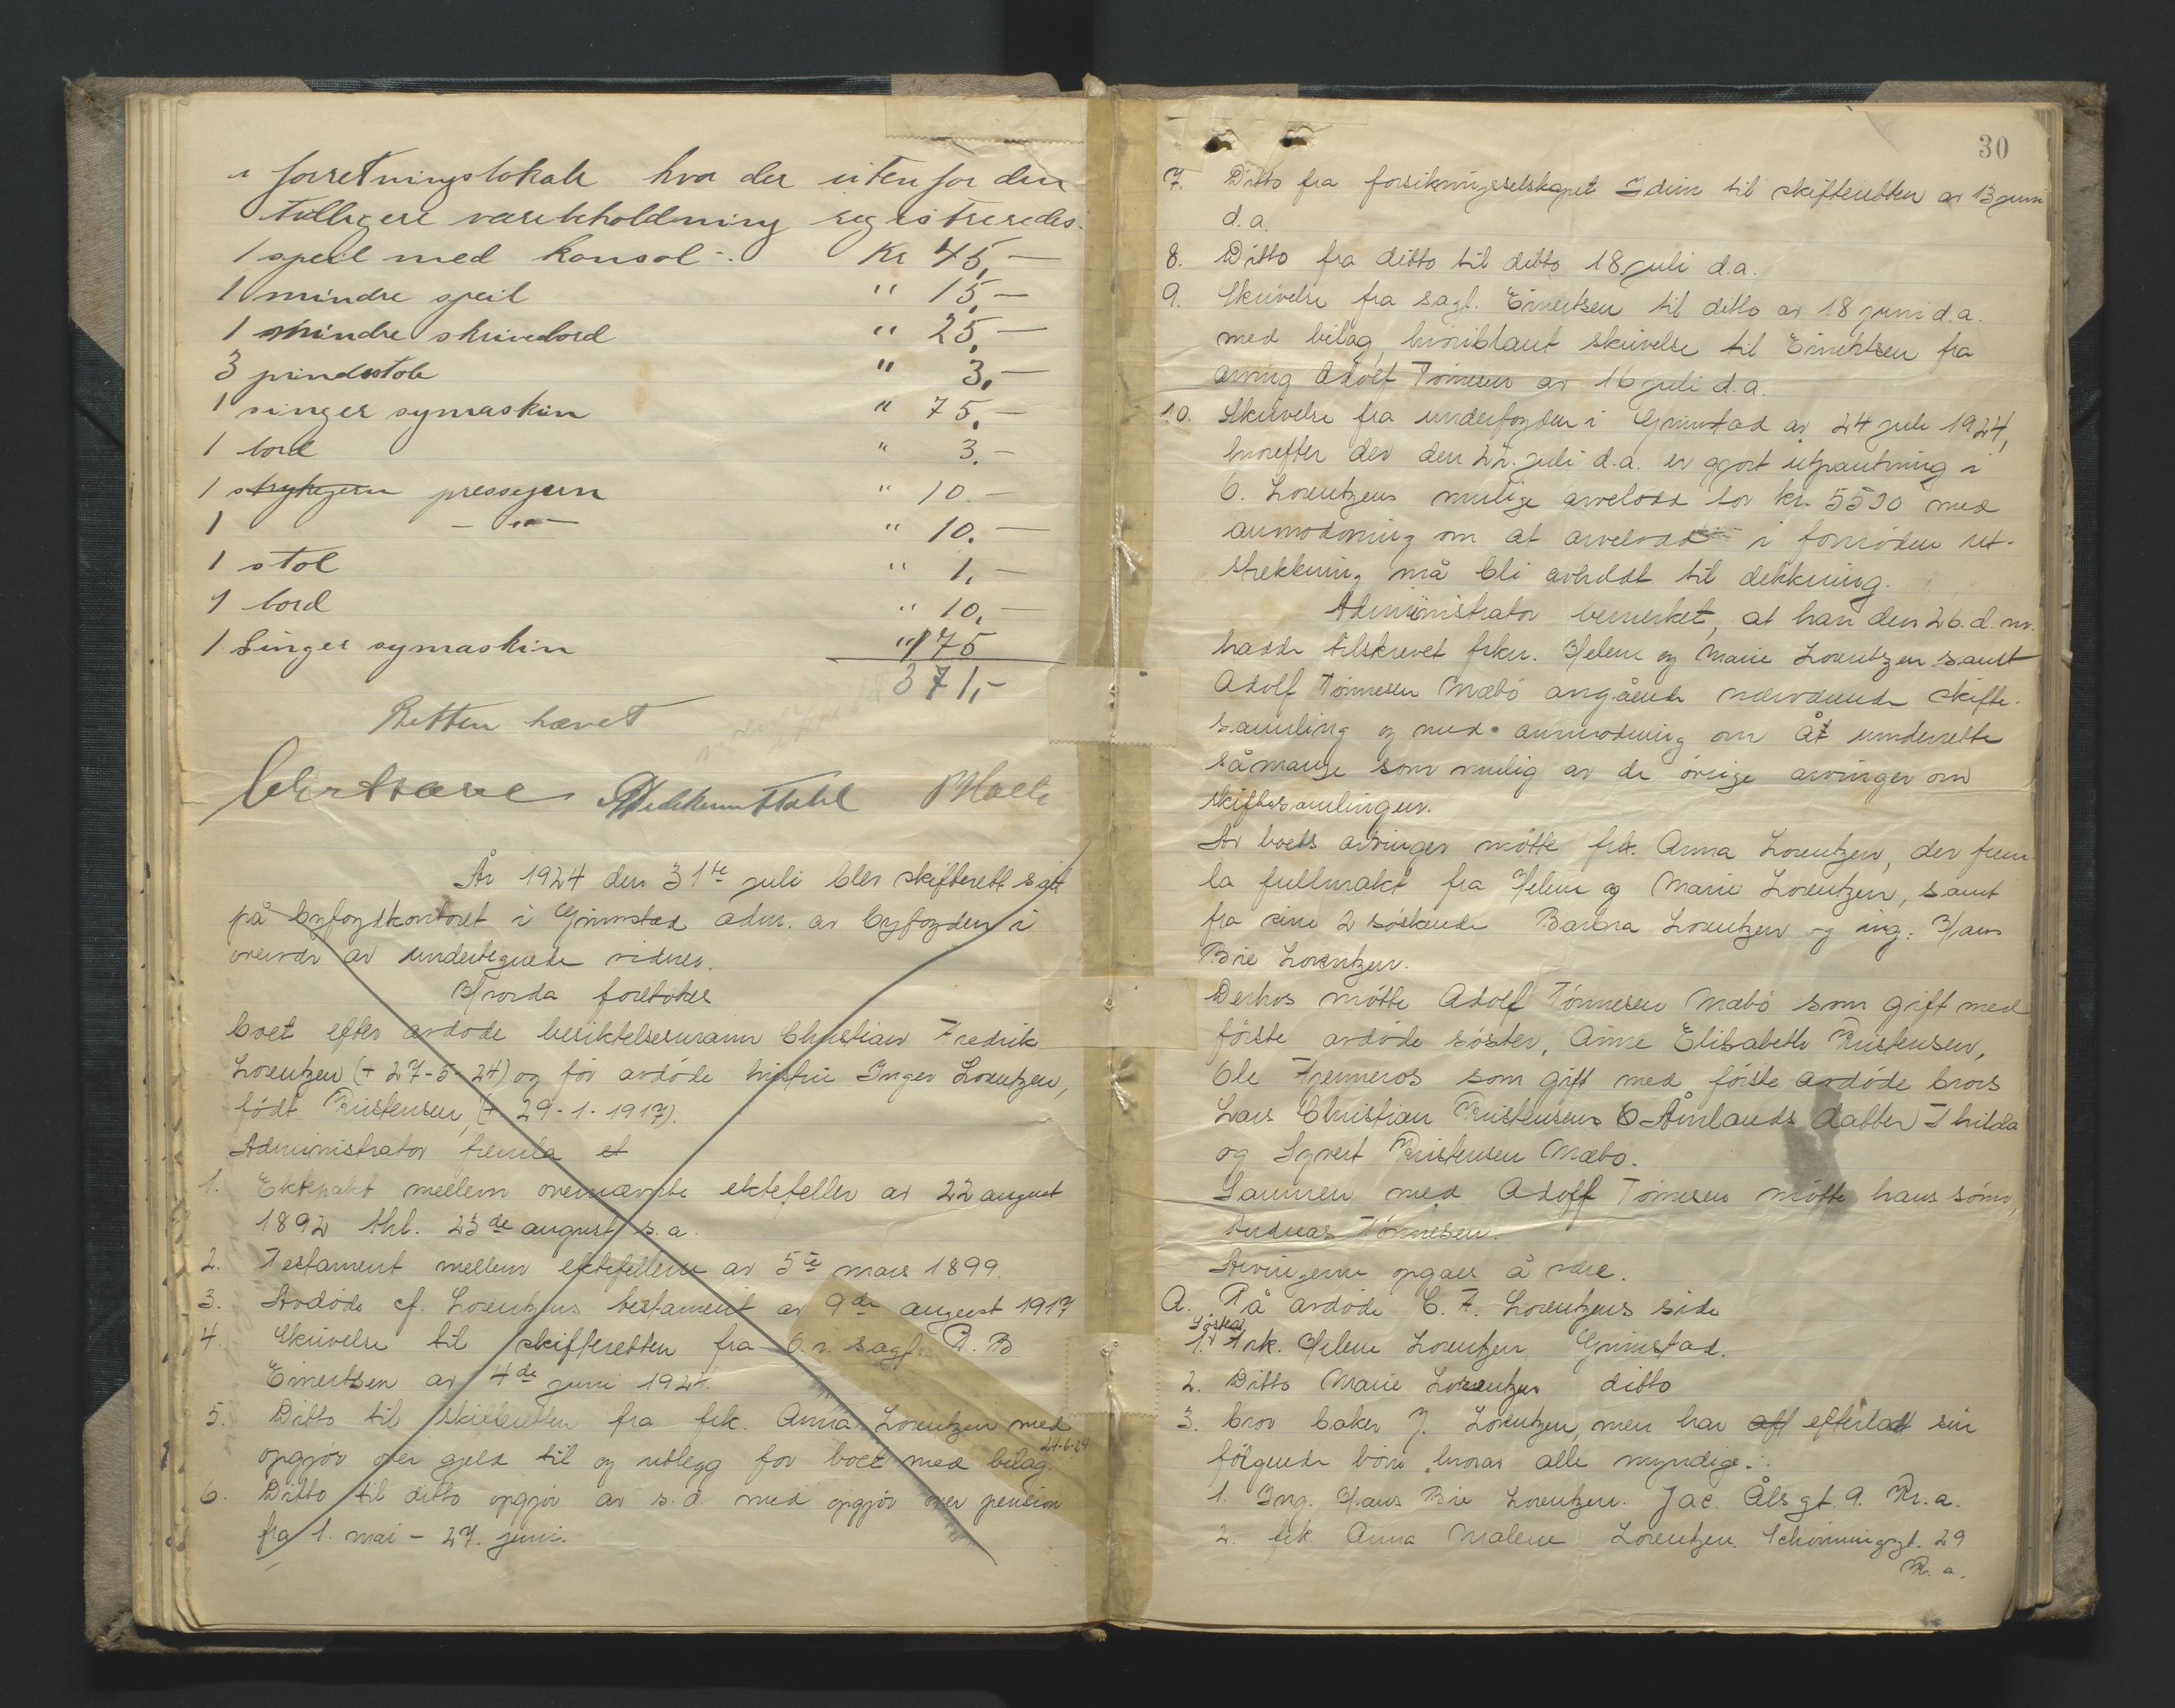 i forretningslokale hvor der uten for den
tidligere varebeholdning registreredes:
1 speil med konsol Kr 45,-
1 mindre speil " 15,-
1 mindre skrivebord " 25,-
3 pindestole " 3,-
1 singer symaskin " 75,-
1 bord " 3.-
1 strykejern pressejern " 10.-
1 -"- " 10.-
1 stol " 1,-
1 bord " 10,-
1 Singer symaskin " 175
371,-
Retten hævet
År 1924 den 31te juli blev skifterett satt
på byfogdkontoret i Grimstad adm. av byfogden i
overvær av undertegnede vidner.
Hvorda foretokes
boet efter avdøde besiktelsesmann Christian Fredrik
Lorentzen (+ 27-5-24) og før avdøde hustru Inger Lorentzen,
født Kristensen, (+ 29-1-1917).
Administrator fremla et
1. Ektepakt mellem ovennævnte ektefeller av 22 august
1892 thl. 23de august s.a.
2. Testament mellem ektefellene av 5te mars 1899.
3. Avdøde cf. Lorentzens testament av 9de august 1917
4. Skrivelse til skifteretten fra O.r. sagf. P. B
Einertsen av 4de juni 1924.
5. Ditto til skifteretten fra frk. Anna Lorentzen med
opgjør over gjeld til og utlegg for boet med bilag. 24-6-24
6. Ditto til ditto opgjør av s.d. med opgjør over pension
fra 1. mai - 27. juni.
30
7. Ditto fra forsikringsselskapet Idun til skifteretten av 13 juni
d.a.
8. Ditto fra ditto til ditto 18 juli d.a.
9. Skrivelse fra sagf. Einertsen til ditto av 18 juni d.a.
med bilag, hvoriblant skrivelse til Einertsen fra
arving Adolf Tønnesen av 16 juli d.a.
10. Skrivelse fra underfogden i Grimstad av 24 juli 1924,
hvorefter der den 22. juli d.a. er gjort utpantning i
O. Lorentzens mulige arvelodd for kr. 5530 med
anmodning om at arvelodd i fornøden ut-
strekkning må bli avholdt til dekkning.
Administrator bemerket, at han den 26. d. m.
hadde tilskrevet frkn. Helene og Marie Lorentzen samt
Adolf Tønnesen Mæbø angående nærværende skifte-
samling og med anmodning om åt underrette
såmange som mulig av de øvrige arvinger om
skiftesamlingen.
Av boets arvinger møtte frk. Anna Lorentzen, der frem
la fullmakt fra Helene og Marie Lorentzen, samt
fra sine 2 søskende Barbra Lorentzen og ing. Hans
Bie Lorentzen.
Derhos møtte Adolf Tønnesen Mæbø som gift med
første avdøde søster, Anne Elisabeth Kristensen,
Ole Fjenneros som gift med førstе avdøde brors
Lars Christian Kristensens Åmlands datter Thilda
og Syvert Kristensen Mæbø.
Sammen med Adolf Tønnesen møtte hans sønn,
Andreas Tønnesen.
Arvingerne opgaes å være.
A. På avdøde C. F. Lorentzens side
Søster
1. Frk. Helene Lorentzen Grimstad.
2. Ditto Marie Lorentzen ditto
3. bror baker J. Lorentzen, men har aff efterlatt sin
følgende børn hvorav alle myndige:
1. Ing. Hans Bie Lorentzen. Jac. Åls gt. 9. Kr.a.
2. frk. Anna Malene Lorentzen. Schønningsgt. 29
Kr. a.